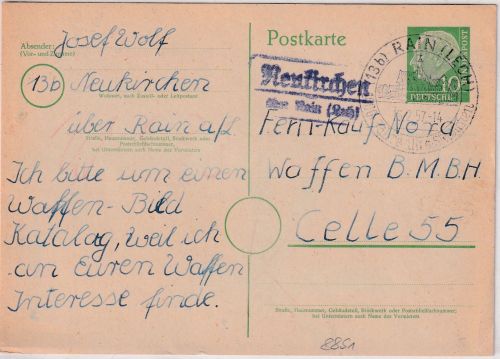 Absender:
(Vor- und Zuname)
Josef Wolf
13b Neukirchen
Wohnort, auch Zustell- oder Leitpostamt
über Rain a/L.
Straße, Hausnummer, Gebäudeteil, Stockwerk oder
Postschließfachnummer,
bei Untermietern auch Name des Vermieters
Ich bitte um einen
Waffen-Bild
Katalog, weil ich
an Euren Waffen
Interesse finde.
Postkarte
Neukirchen
über Rain (Lech)
(13b) RAIN (LECH)
57-14
POST
10
DEUTSCHE
Fern-Kauf Nord
Waffen B.M.B.H.
Celle 55
Straße, Hausnummer, Gebäudeteil, Stockwerk oder Postschließfachnummer;
bei Untermietern auch Name des Vermieters
8851